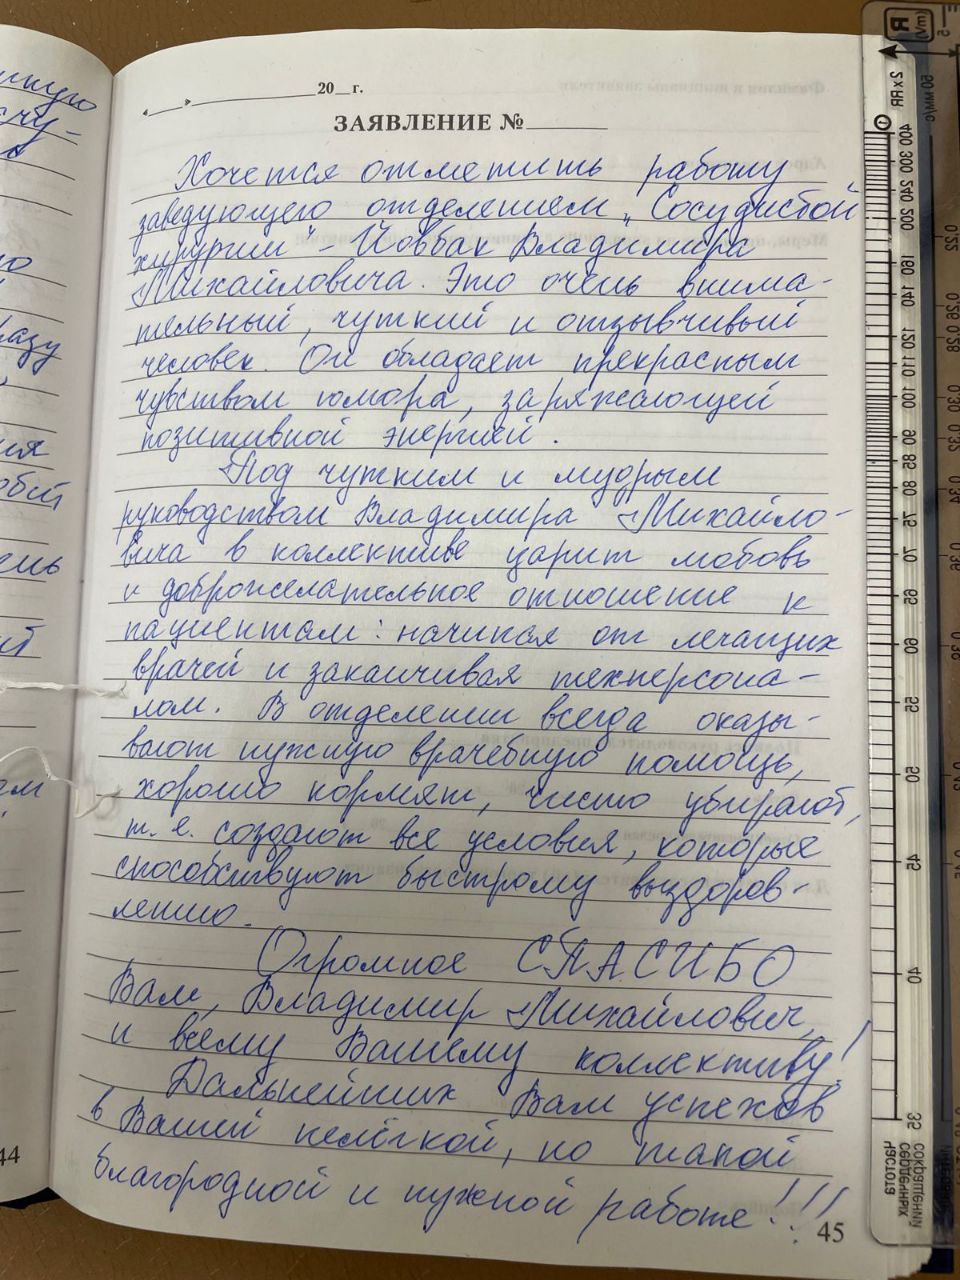 «____»______________20__г.
ЗАЯВЛЕНИЕ №________
Хочется отметить работу
заведующего отделением „Сосудистой
хирургии" - Йовбак Владимира
Михайловича. Это очень внима-
тельный, чуткий и отзывчивый
человек. Он обладает прекрасным
чувством юмора, заряжающей
позитивной энергией.
Под чутким и мудрым
руководством Владимира Михайло-
вича в коллективе царит любовь
и доброжелательное отношение к
пациентам: начиная от лечащих
врачей и заканчивая техперсона-
лом. В отделении всегда оказы-
вают нужную врачебную помощь,
хорошо кормят, чисто убирают,
т.е. создают все условия, которые
способствуют быстрому выздоров-
лению.
Огромное СПАСИБО
Вам, Владимир Михайлович,
и всему Вашему коллективу!
Дальнейших Вам успехов
в Вашей нелёгкой, но такой
благородной и нужной работе!!!
45
44